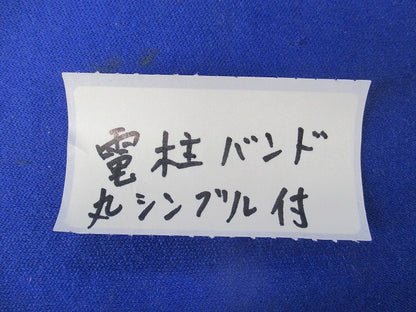 電柱バンド
丸シンブル付